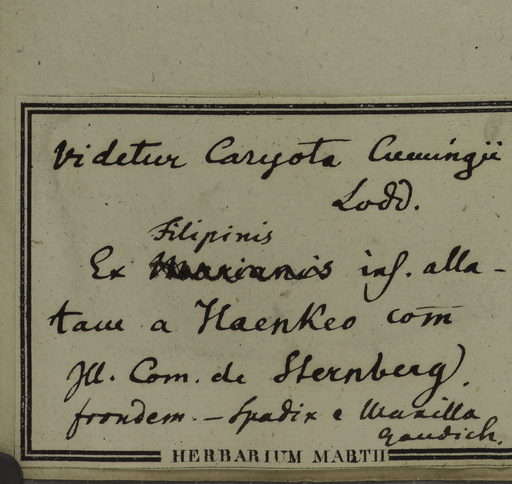 Videtur Caryota Cumingii
Lodd.
Filipinis
Ex Marianis inf. alla-
tam a Haenkeo com̄
Ill. Com. de Sternberg)
frondem. — Spadix e Manilla
Gaudich.
HERBARIUM MARTII